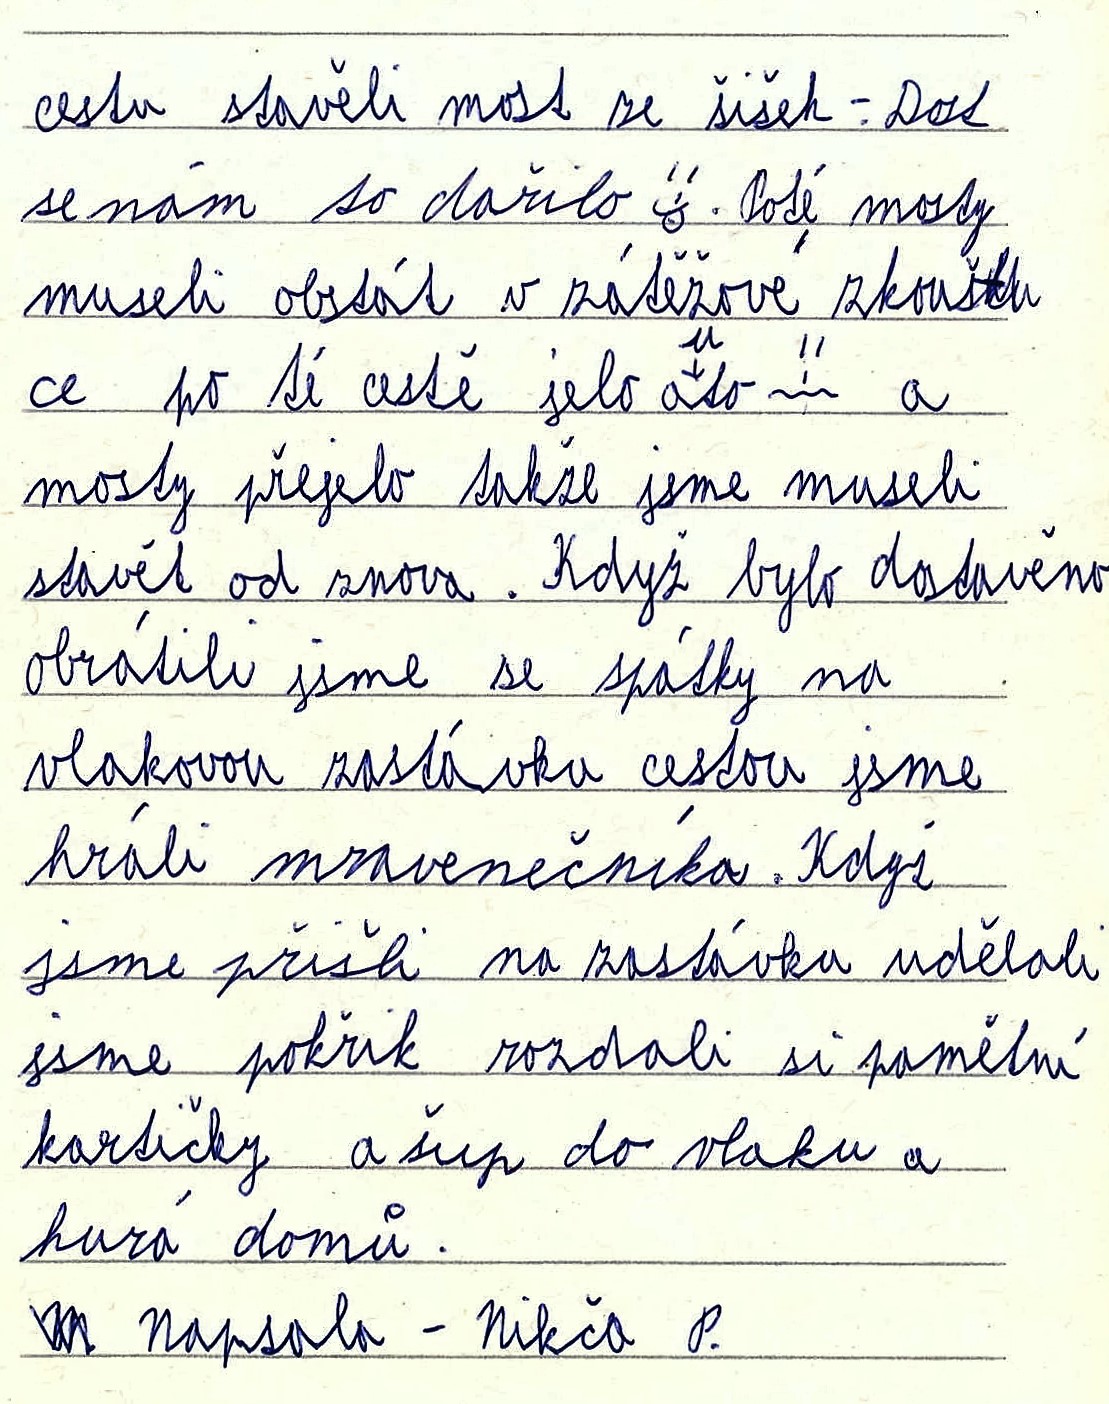 cestu stavěli most ze šišek -. Dost
se nám to dařilo. Poté mosty
museli obstát v zátěžové zkoušku
ce po té cestě jelo auto a
mosty přejelo takže jsme museli
stavět od znova. Když bylo dostavěno
obrátili jsme se spátky na
vlakovou zastávku cestou jsme
hráli mravenečníka. Když
jsme přišli na zastávku udělali
jsme pokřik rozdali si pamětní
kartičky a šup do vlaku a
hurá domů.
Napsala - Nikča P.